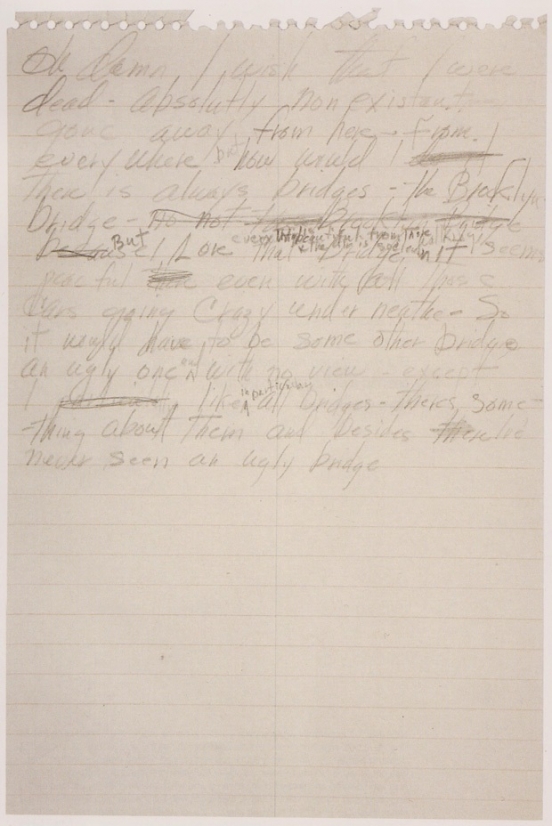 Oh damn I wish that I were
dead - absolutly nonexistant
gone away from here - from
everywhere but how would I
There is always bridges - the Brooklyn
bridge - no not the Brooklyn Bridge
because But I Love that bridge everything is beautiful from there and the air is so clean in it seems
peaceful there even with all those
cars going crazy under neathe - So
it would have to be some other bridge
an ugly one and with no view - except
I particularly like in particular all bridges - theres some-
thing about them and besides there I've
never seen an ugly bridge